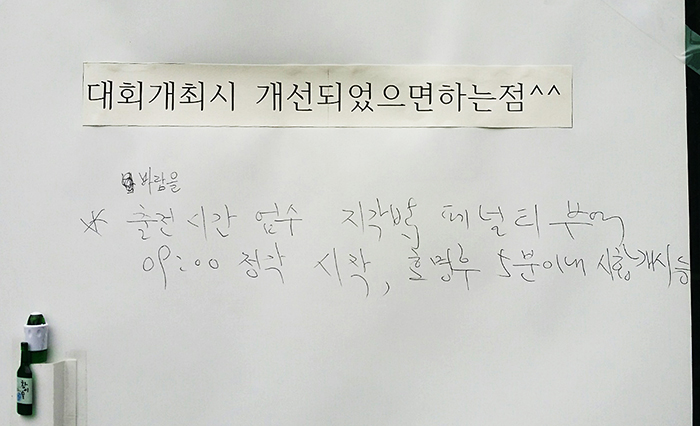 대회개최시 개선되었으면하는점^^
바람을
* 출전 시간 엄수 지각반 페널티 부여
09:00 정각 시작, 호명후 5분이내 시합개시등